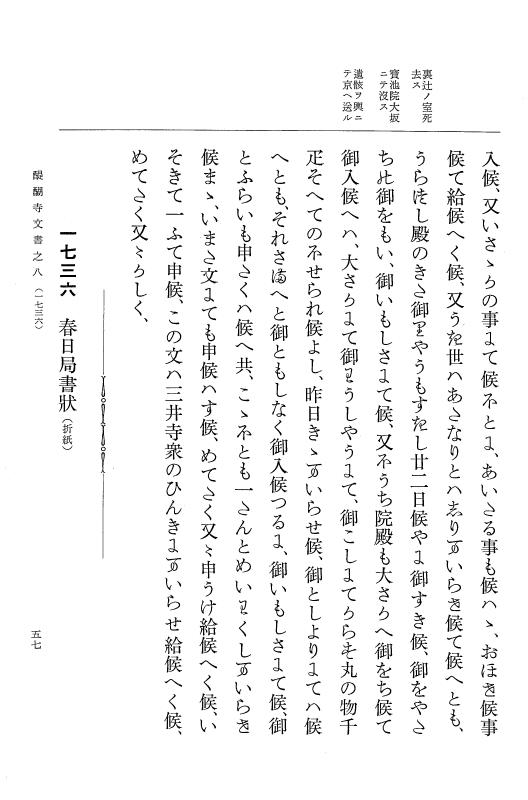 裏辻ノ室死
去ス
寶池院大坂
ニテ沒ス
遺骸ヲ輿ニ
テ京へ送ル
入候、又いさゝかの事にて候ほとに、あいたる事も候ハゝ、おほき候事
候て給候へく候、又うき世ハあたなりとハしりまいらせ候て候へとも、
うらつし殿のきた御りやうもすきし廿二日候やに御すき候、御をやた
ち此御をもい、御いもしさにて候、又ほうち院殿も大さかへ御をち候て
御入候へハ、大さかにて御わうしやうにて、御こしにてからも丸の物千
疋そへてのほせられ候よし、昨日きゝまいらせ候、御としよりにてハ候
へとも、それさまへと御ともしなく御入候つるに、御いもしさにて候、御
とふらいも申たくハ候へ共、こゝほとも一たんとめいわくしまいらせ
候まゝ、いまた文にても申候ハす候、めてたく又〻申うけ給候へく候、い
そきて一ふて申候、この文ハ三井寺衆のひんきにまいらせ給候へく候、
めてたく又〻かしく、
一七三六 春日局書狀(折紙)
醍醐寺文書之八(一七三六)
五七